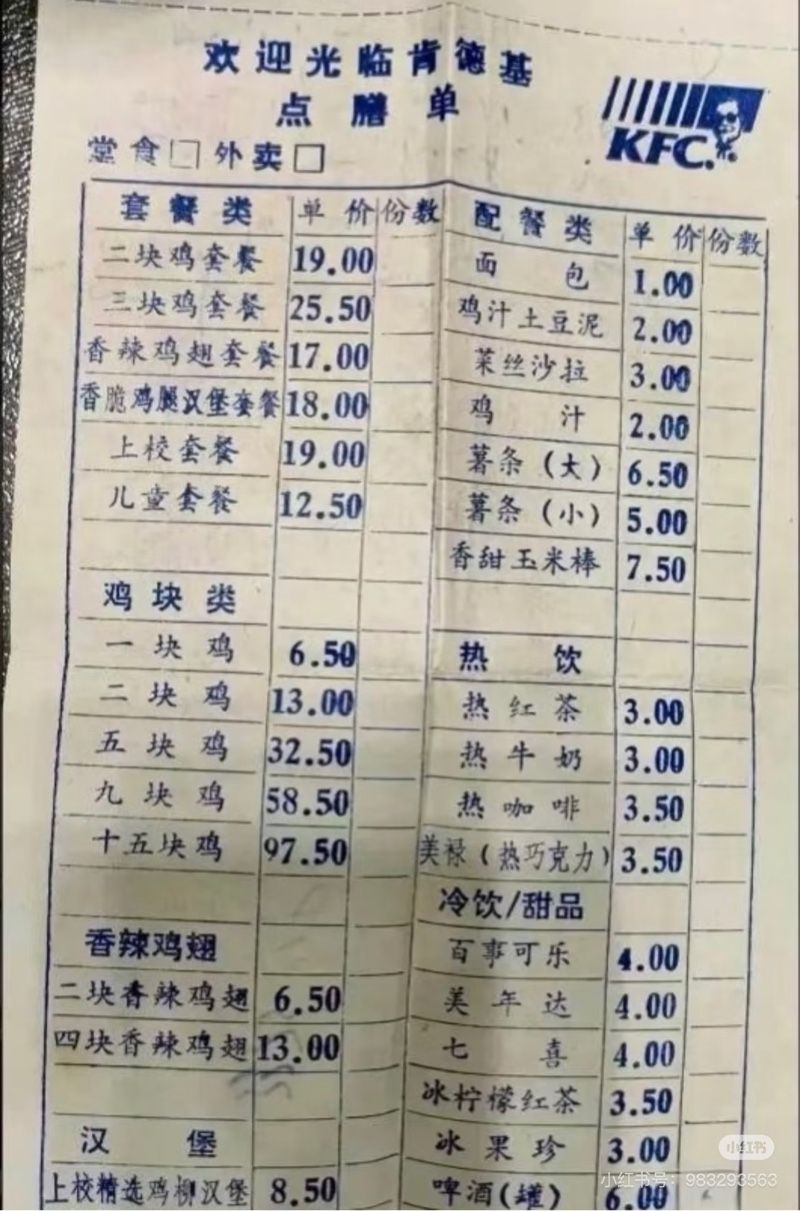 欢迎光临肯德基
点膳单
KFC.
堂食□ 外卖□
套餐类 单价 份数
二块鸡套餐 19.00
三块鸡套餐 25.50
香辣鸡翅套餐 17.00
香脆鸡腿汉堡套餐 18.00
上校套餐 19.00
儿童套餐 12.50
鸡块类
一块鸡 6.50
二块鸡 13.00
五块鸡 32.50
九块鸡 58.50
十五块鸡 97.50
香辣鸡翅
二块香辣鸡翅 6.50
四块香辣鸡翅 13.00
汉堡
上校精选鸡柳汉堡 8.50
配餐类 单价 份数
面包 1.00
鸡汁土豆泥 2.00
菜丝沙拉 3.00
鸡汁 2.00
薯条(大) 6.50
薯条(小) 5.00
香甜玉米棒 7.50
热饮
热红茶 3.00
热牛奶 3.00
热咖啡 3.50
美禄(热巧克力) 3.50
冷饮/甜品
百事可乐 4.00
美年达 4.00
七喜 4.00
冰柠檬红茶 3.50
冰果珍 3.00
啤酒(罐) 6.00
小红书
小红书号：983293563